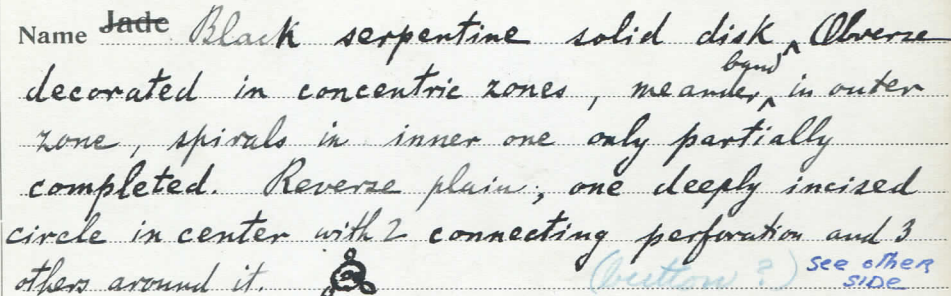 Name Jade Black serpentine solid disk ^ Obverse
decorated in concentric zones, meander ^ band in outer
zone, spirals in inner one only partially
completed. Reverse plain; one deeply incised
circle in center with 2 connecting perforation and 3
others around it. (button?) see other
SIDE